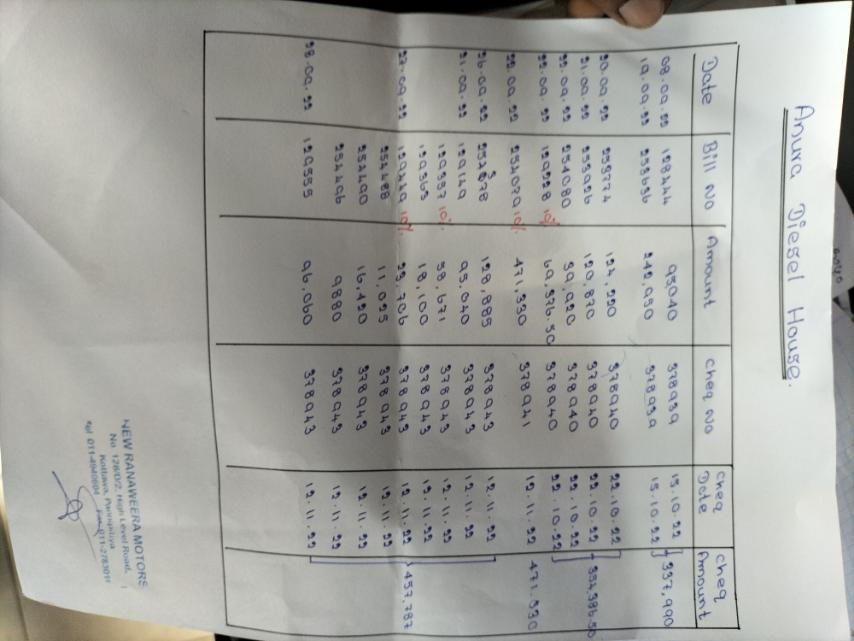 Anura Diesel House.
Date Bill No Amount Cheq No Cheq Date Cheq Amount
08.09.22 128444 95040 378939 15.10.22
19.09.22 253636 242,950 378939 15.10.22 337,990
20.09.22 253774 124,220 378940 22.10.22
21.09.22 253926 120,870 378940 22.10.22
22.09.22 254080 39,920 378940 22.10.22 354,386.50
22.09.22 129228 10% 69,376.50 378940 22.10.22
22.09.22 254079 10% 471,330 378941 12.11.22 471,330
26.09.22 128,885 378943 12.11.22
21.09.22 129149 95,040 378943 12.11.22
129357 10% 58,671 378943 12.11.22
129363 18,100 378943 12.11.22
27.09.22 129419 10% 23,706 378943 12.11.22 457,787
254488 11,025 378943 12.11.22
254490 16,420 378943 12.11.22
254496 9880 378943 12.11.22
28.09.22 129555 96,060 378943 12.11.22
NEW RANAWEERA MOTORS
No. 126/D/2, High Level Road,
Kottawa, Pannipitiya
Tel: 011-4940604 Fax: 011-2783011